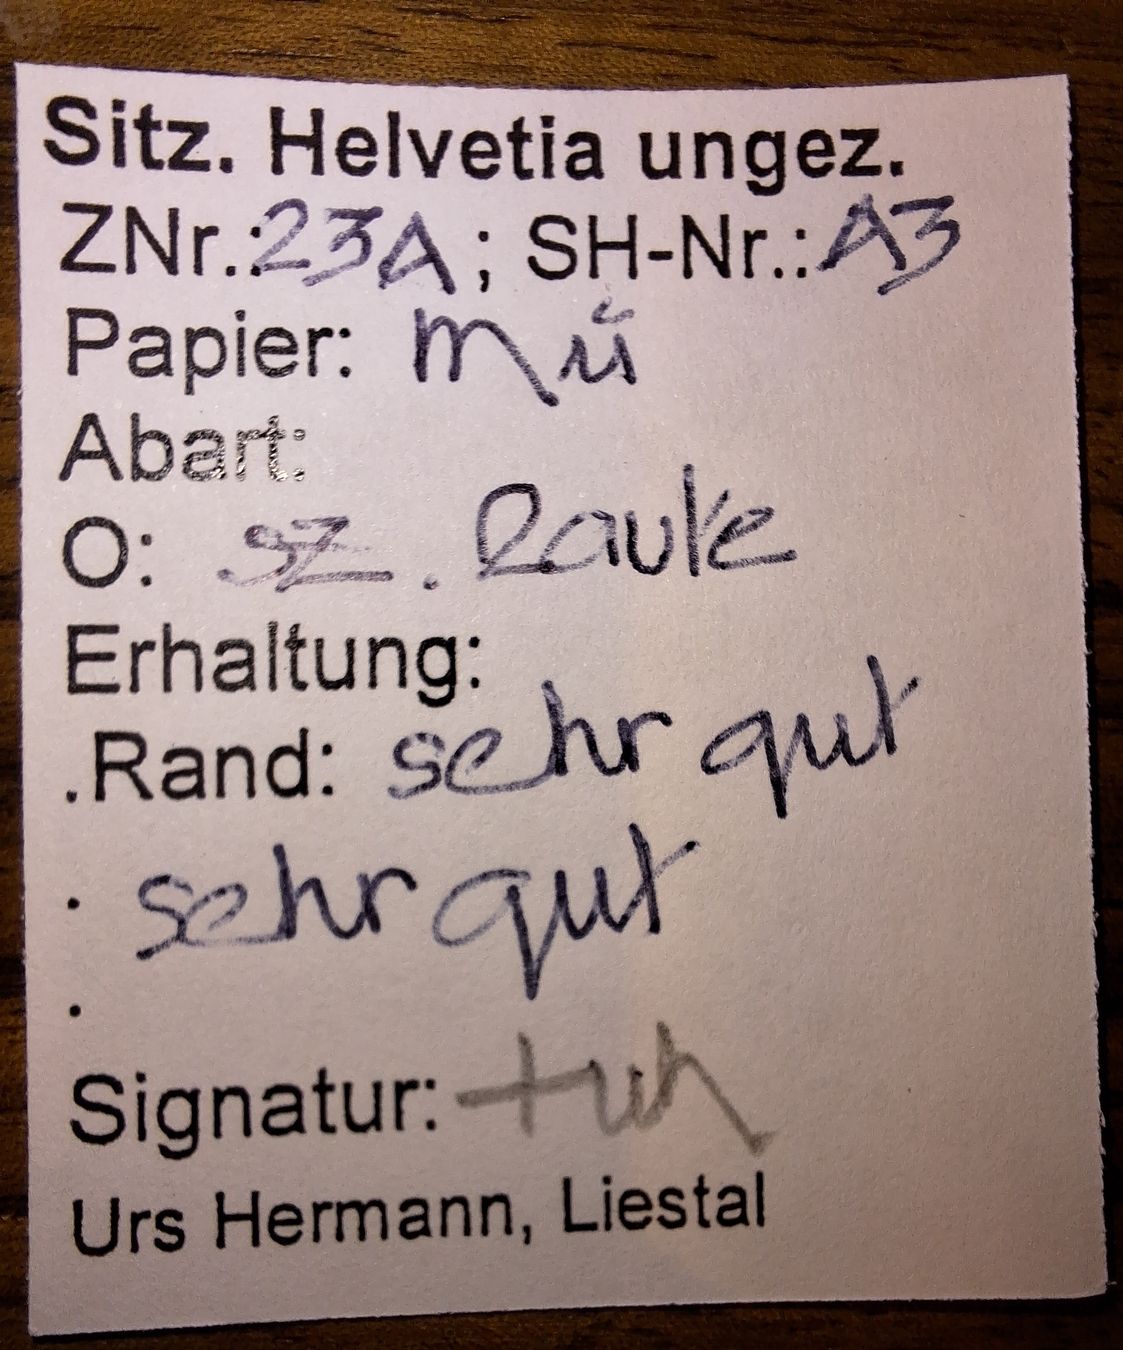 Sitz. Helvetia ungez.
ZNr.: 23A; SH-Nr.: A3
Papier: Mü
Abart:
O: sz. Raute
Erhaltung:
.Rand: sehr gut
. sehr gut
.
Signatur: +uh
Urs Hermann, Liestal